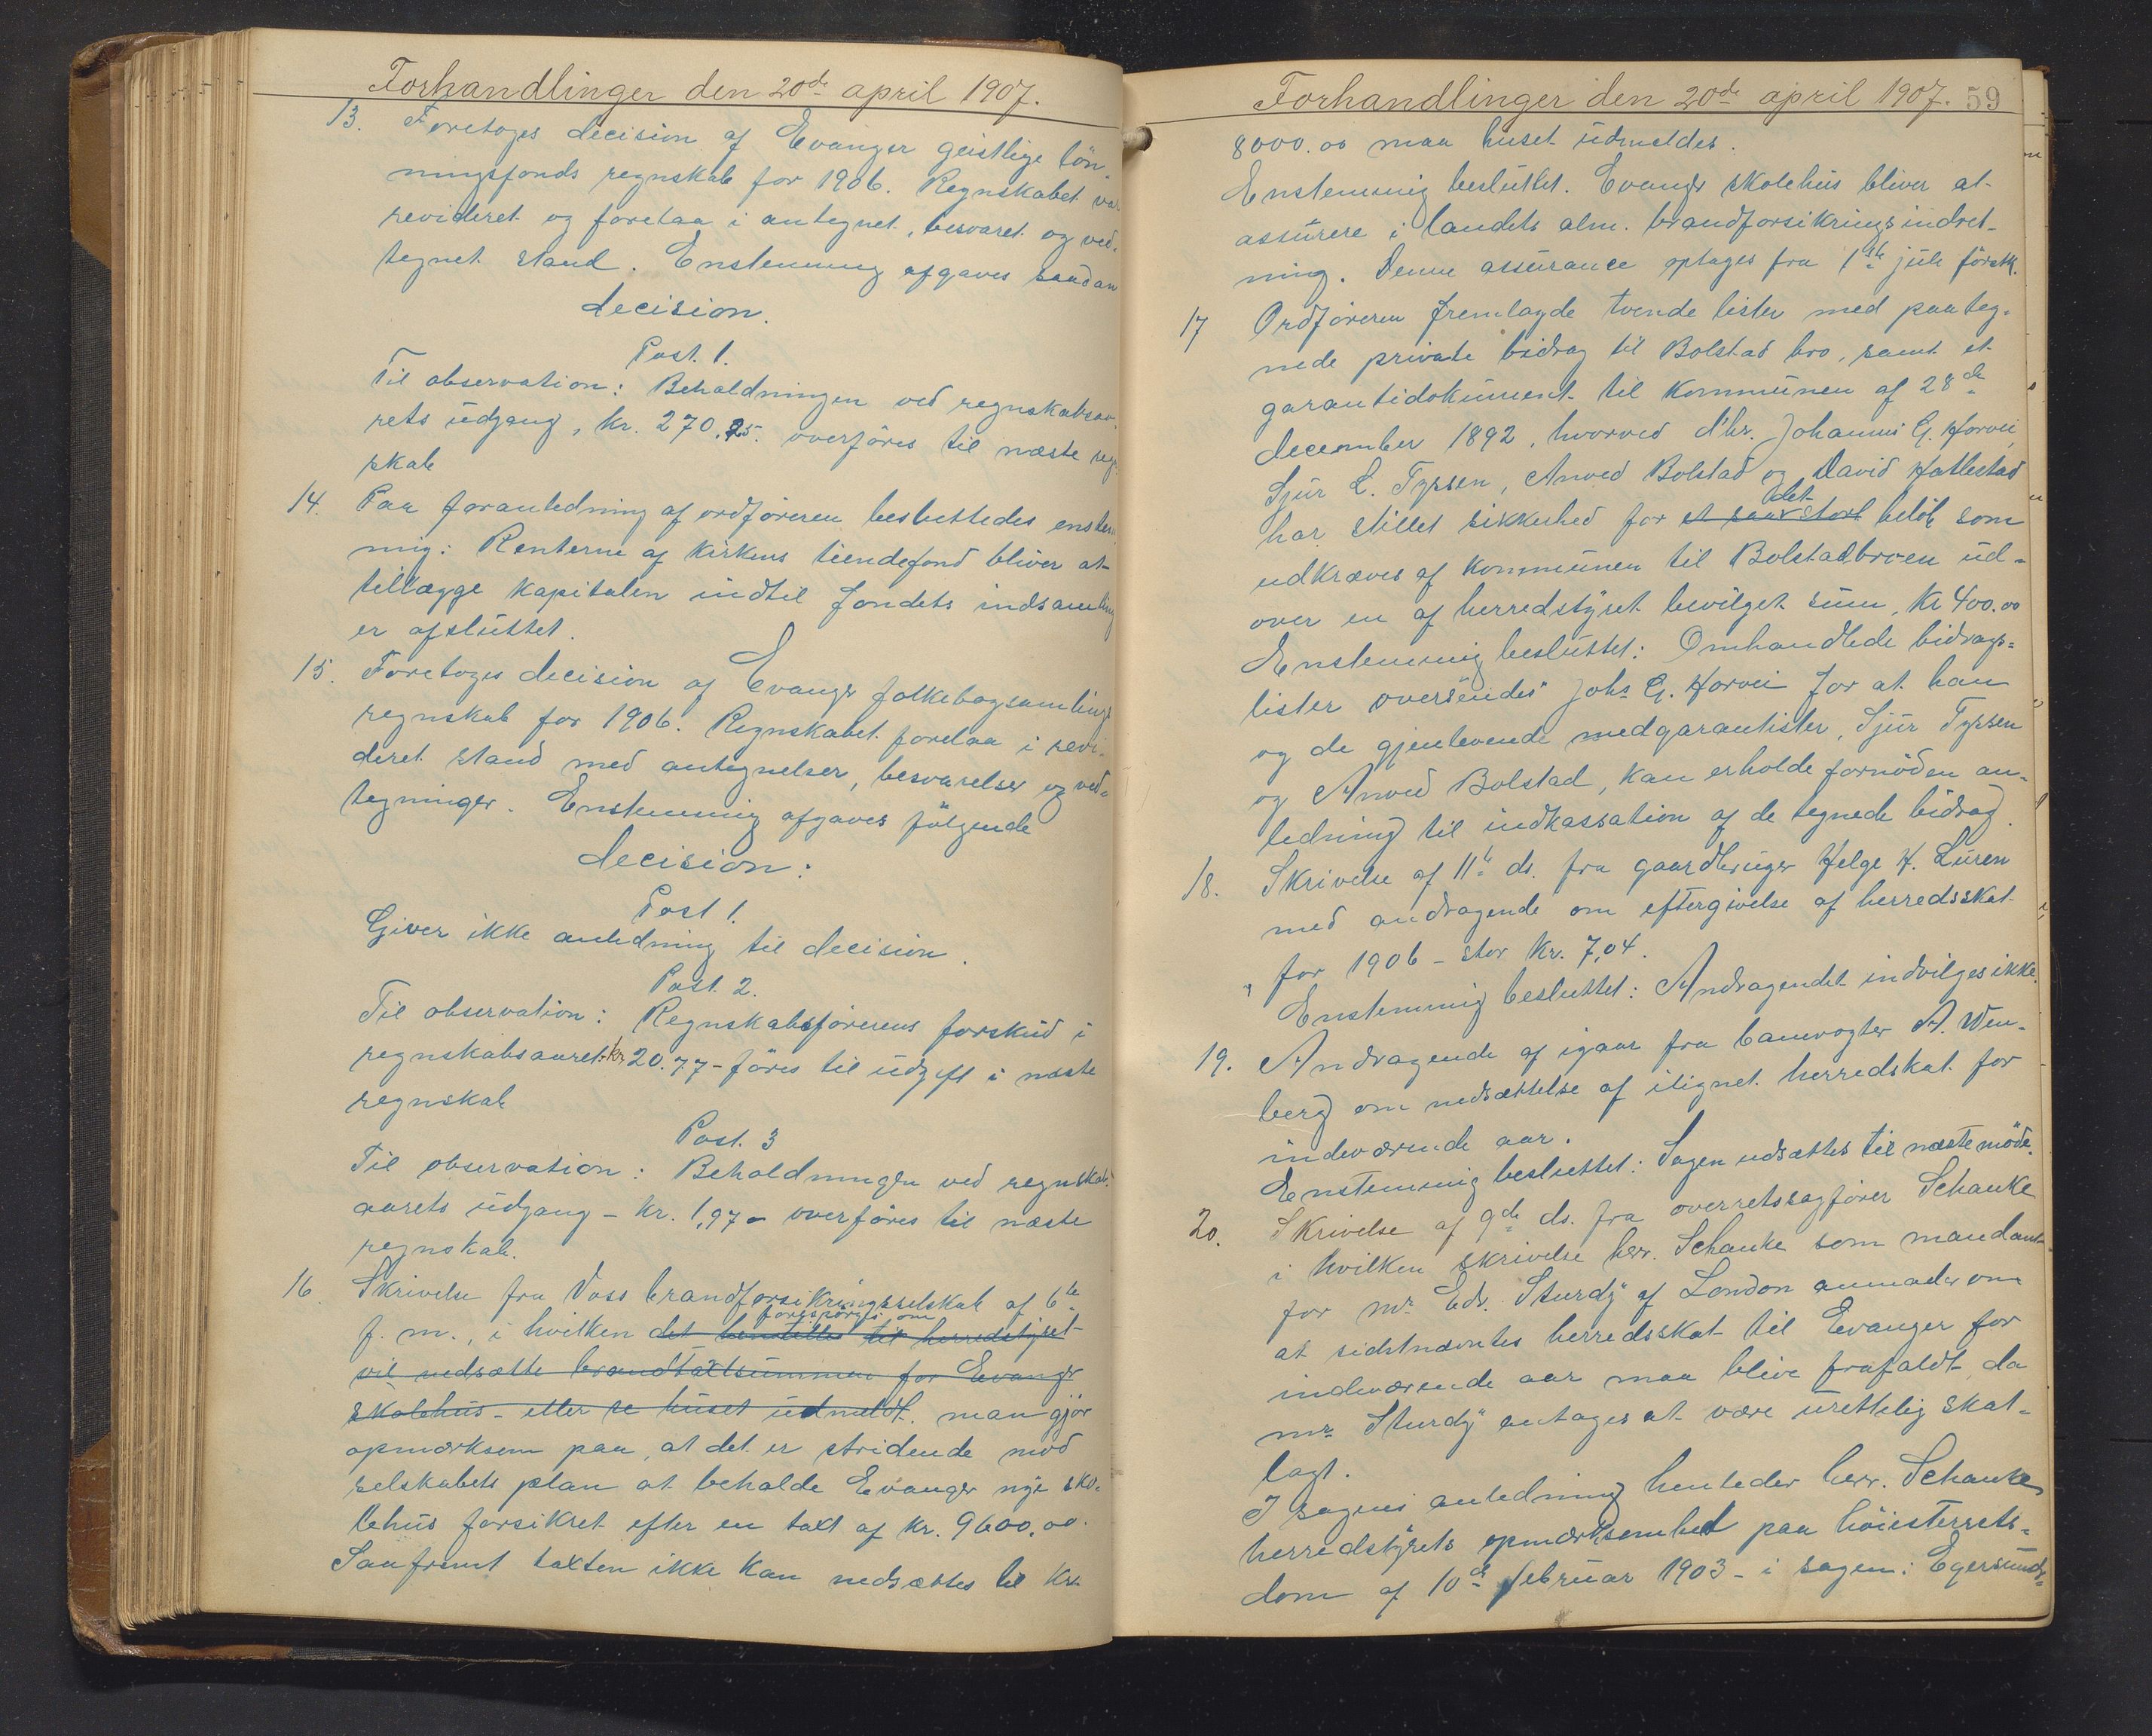 Forhandlinger den 20de april 1907.
13. Foretoges decision af Evanger geistlige løn-
ningsfonds regnskab for 1906. Regnskabet var
revideret og forelaa i antegnet, besvaret og ved-
tegnet stand. Enstemmig afgaves saadan
decision.
Post. 1.
Til observation: Beholdningen ved regnskabsaa-
rets udgang, kr. 270.25. overføres til næste regn-
skab
14. Paa foranledning af ordføreren besluttedes enstem-
mig: Renterne af kirkens tiendefond bliver at
tillægge kapitalen indtil fondets indsamling
er afsluttet.
15. Foretoges decision af Evanger folkebogsamlings
regnskab for 1906. Regnskabet forelaa i revi-
deret stand med antegnelser, besvarelser og ved-
tegninger. Enstemmig afgaves følgende
decision:
Post 1.
Giver ikke anledning til decision.
Post. 2.
Til observation: Regnskabsførerens forskud i
regnskabsaaret kr 20.77 - føres til udgift i næste
regnskab
Post. 3
Til observation: Beholdningen ved regnskabs-
aarets udgang - kr. 1,97 - overføres til næste
regnskab.
16. Skrivelse fra Voss brandforsikringsselskab af 6te
forespørges om
f. m., i hvilken det henstilles til herredstyret
vil nedsætte brandtaxtsummen for Evanger
skolehus - eller se huset udmeldt. man gjør
opmerksom paa, at det er stridende mod
selskabets plan at beholde Evanger nye sko-
lehus forsikret efter en taxt af kr. 9600,00.
Saafremt taxten ikke kan nedsættes til kr.
Forhandlinger den 20de april 1907. 59
8000.00 maa huset udmeldes.
Enstemmig besluttet. Evanger skolehus bliver at
assurere i landets alm. brandforsikringsindret-
ning. Denne assurance optages fra 1ste juli førstk.
17 Ordføreren fremlagde tvende lister med paateg-
nede private bidrag til Bolstad bro, samt et
garantidokument til kommunen af 28de
december 1892, hvorved d'hr. Johannes G. Horvei,
Sjur L. Tyssen, Anved Bolstad og David Hatlestad
det
har stillet sikkerhed for et saa stort beløb som
udkræves af kommunen til Bolstadbroen ud-
over en af herredstyret bevilget sum, kr 400.00
Enstemmig besluttet: Omhandlede bidrags-
lister oversendes Johs G. Horvei for at han
og de gjenlevende medgarantister, Sjur Tyssen
og Anved Bolstad, kan erholde fornøden an-
ledning til indkassation af de tegnede bidrag.
18. Skrivelse af 11te ds. fra gaardbruger Helge H. Luren
med andragende om eftergivelse af herredsskat
for 1906 - stor kr. 7,04.
Enstemmig besluttet: Andragendet indvilges ikke.
19. Andragende af igaar fra banevogter A. Wen-
berg om nedsættelse af ilignet herredskat for
indeværende aar.
Enstemmig besluttet: Sagen udsættes til næste møde.
20. Skrivelse af 9de ds. fra overretssagfører Schanke
i hvilken skrivelse herr. Schanke som mandant
for mr Edv. Sturdy af London anmoder om
at sidstnævntes herredsskat til Evanger for
indeværende aar maa blive frafaldt, da
mr Sturdy antages at være urettelig skat-
lagt.
I sagens anledning henleder herr. Schanke
herredstyrets opmærksomhed paa høiesterrets-
dom af 10de februar 1903 - i sagen: Egersunds-